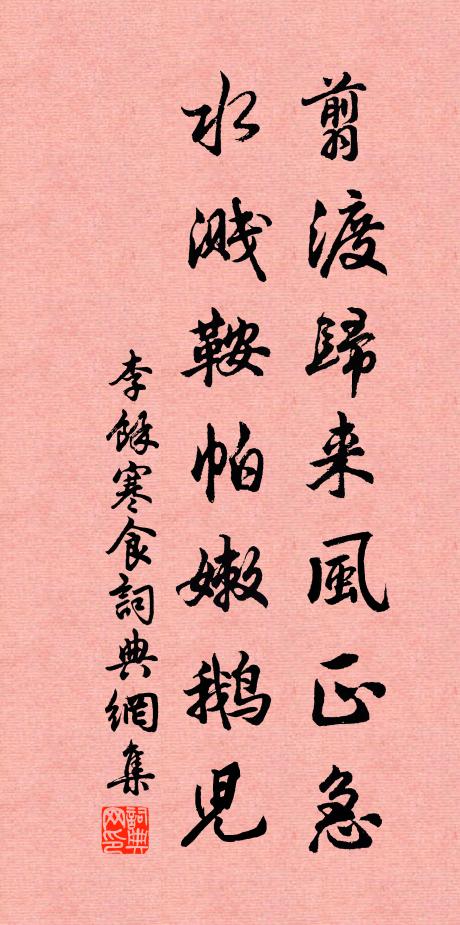 翦渡歸来風正急
水濺鞍帕嫩鵝兒
李餘寒食詞典網集
詞典网印